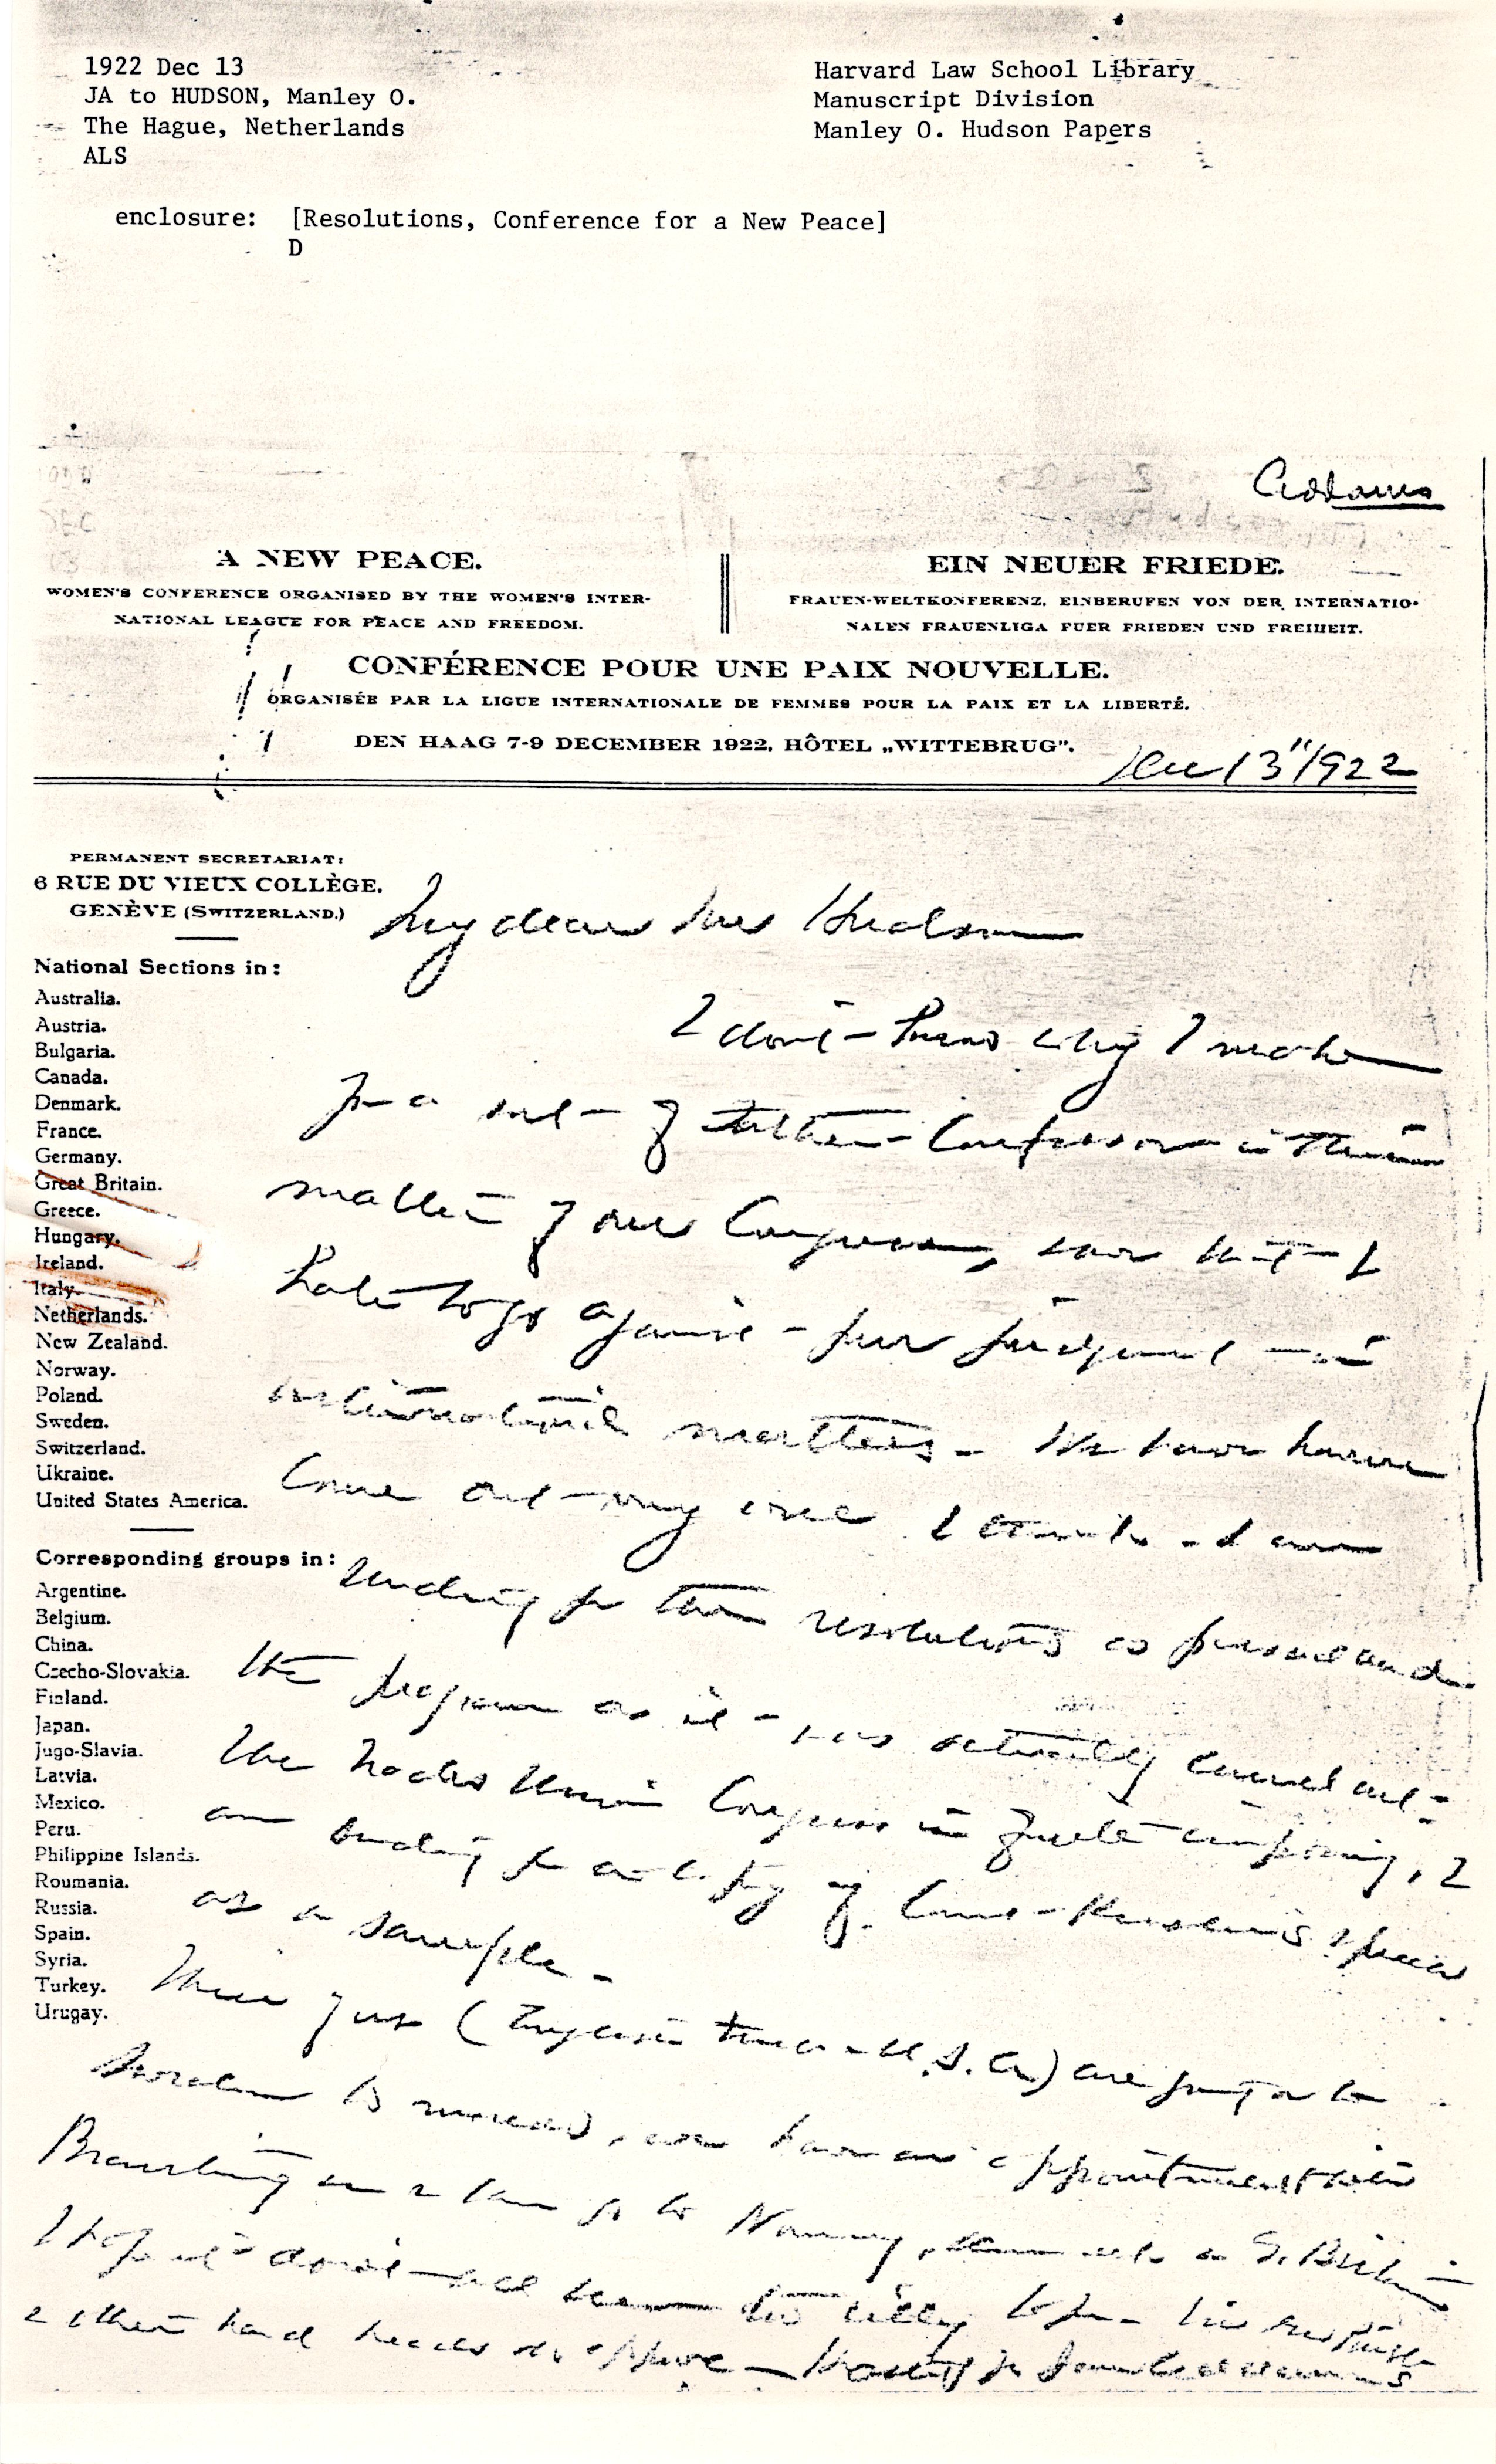 1922 Dec 13
JA to HUDSON, Manley O.
The Hague, Netherlands
ALS
Harvard Law School Library
Manuscript Division
Manley O. Hudson Papers
enclosure: [Resolutions, Conference for a New Peace]
D
Addams
A NEW PEACE.
WOMEN'S CONFERENCE ORGANISED BY THE WOMEN'S INTER-
NATIONAL LEAGUE FOR PEACE AND FREEDOM.
EIN NEUER FRIEDE.
FRAUEN-WELTKONFERENZ, EINBERUFEN VON DER INTERNATIO-
NALEN FRAUENLIGA FUER FRIEDEN UND FREIHEIT.
CONFÉRENCE POUR UNE PAIX NOUVELLE.
ORGANISÉE PAR LA LIGUE INTERNATIONALE DE FEMMES POUR LA PAIX ET LA LIBERTÉ.
DEN HAAG 7-9 DECEMBER 1922, HÔTEL „WITTEBRUG".
Dec 13" 1922
PERMANENT SECRETARIAT:
6 RUE DU VIEUX COLLÈGE.
GENÈVE (SWITZERLAND.)
National Sections in:
Australia.
Austria.
Bulgaria.
Canada.
Denmark.
France.
Germany.
Great Britain.
Greece.
Hungary.
Ireland.
Italy.
Netherlands.
New Zealand.
Norway.
Poland.
Sweden.
Switzerland.
Ukraine.
United States America.
Corresponding groups in:
Argentine.
Belgium.
China.
Czecho-Slovakia.
Finland.
Japan.
Jugo-Slavia.
Latvia.
Mexico.
Peru.
Philippine Islands.
Roumania.
Russia.
Spain.
Syria.
Turkey.
Urugay.
My dear Mr Hudson
I don't know why I make
you a sort of father confessor in this
matter of our Congress, save that I
hate to go against your judgment in
international matters. We have
come out very well I think. I am
sending you the resolutions as passed and
the program as it was actually carried out.
The Trades Union Congress is quite
am sending you a copy of speech
as a sample.
Three of us (English U.S.A) are going to
Sweden to morrow, we have an appointment with
Branting and then go to Norway, G. Britain
I hope it doesn't all seem too silly to you
&